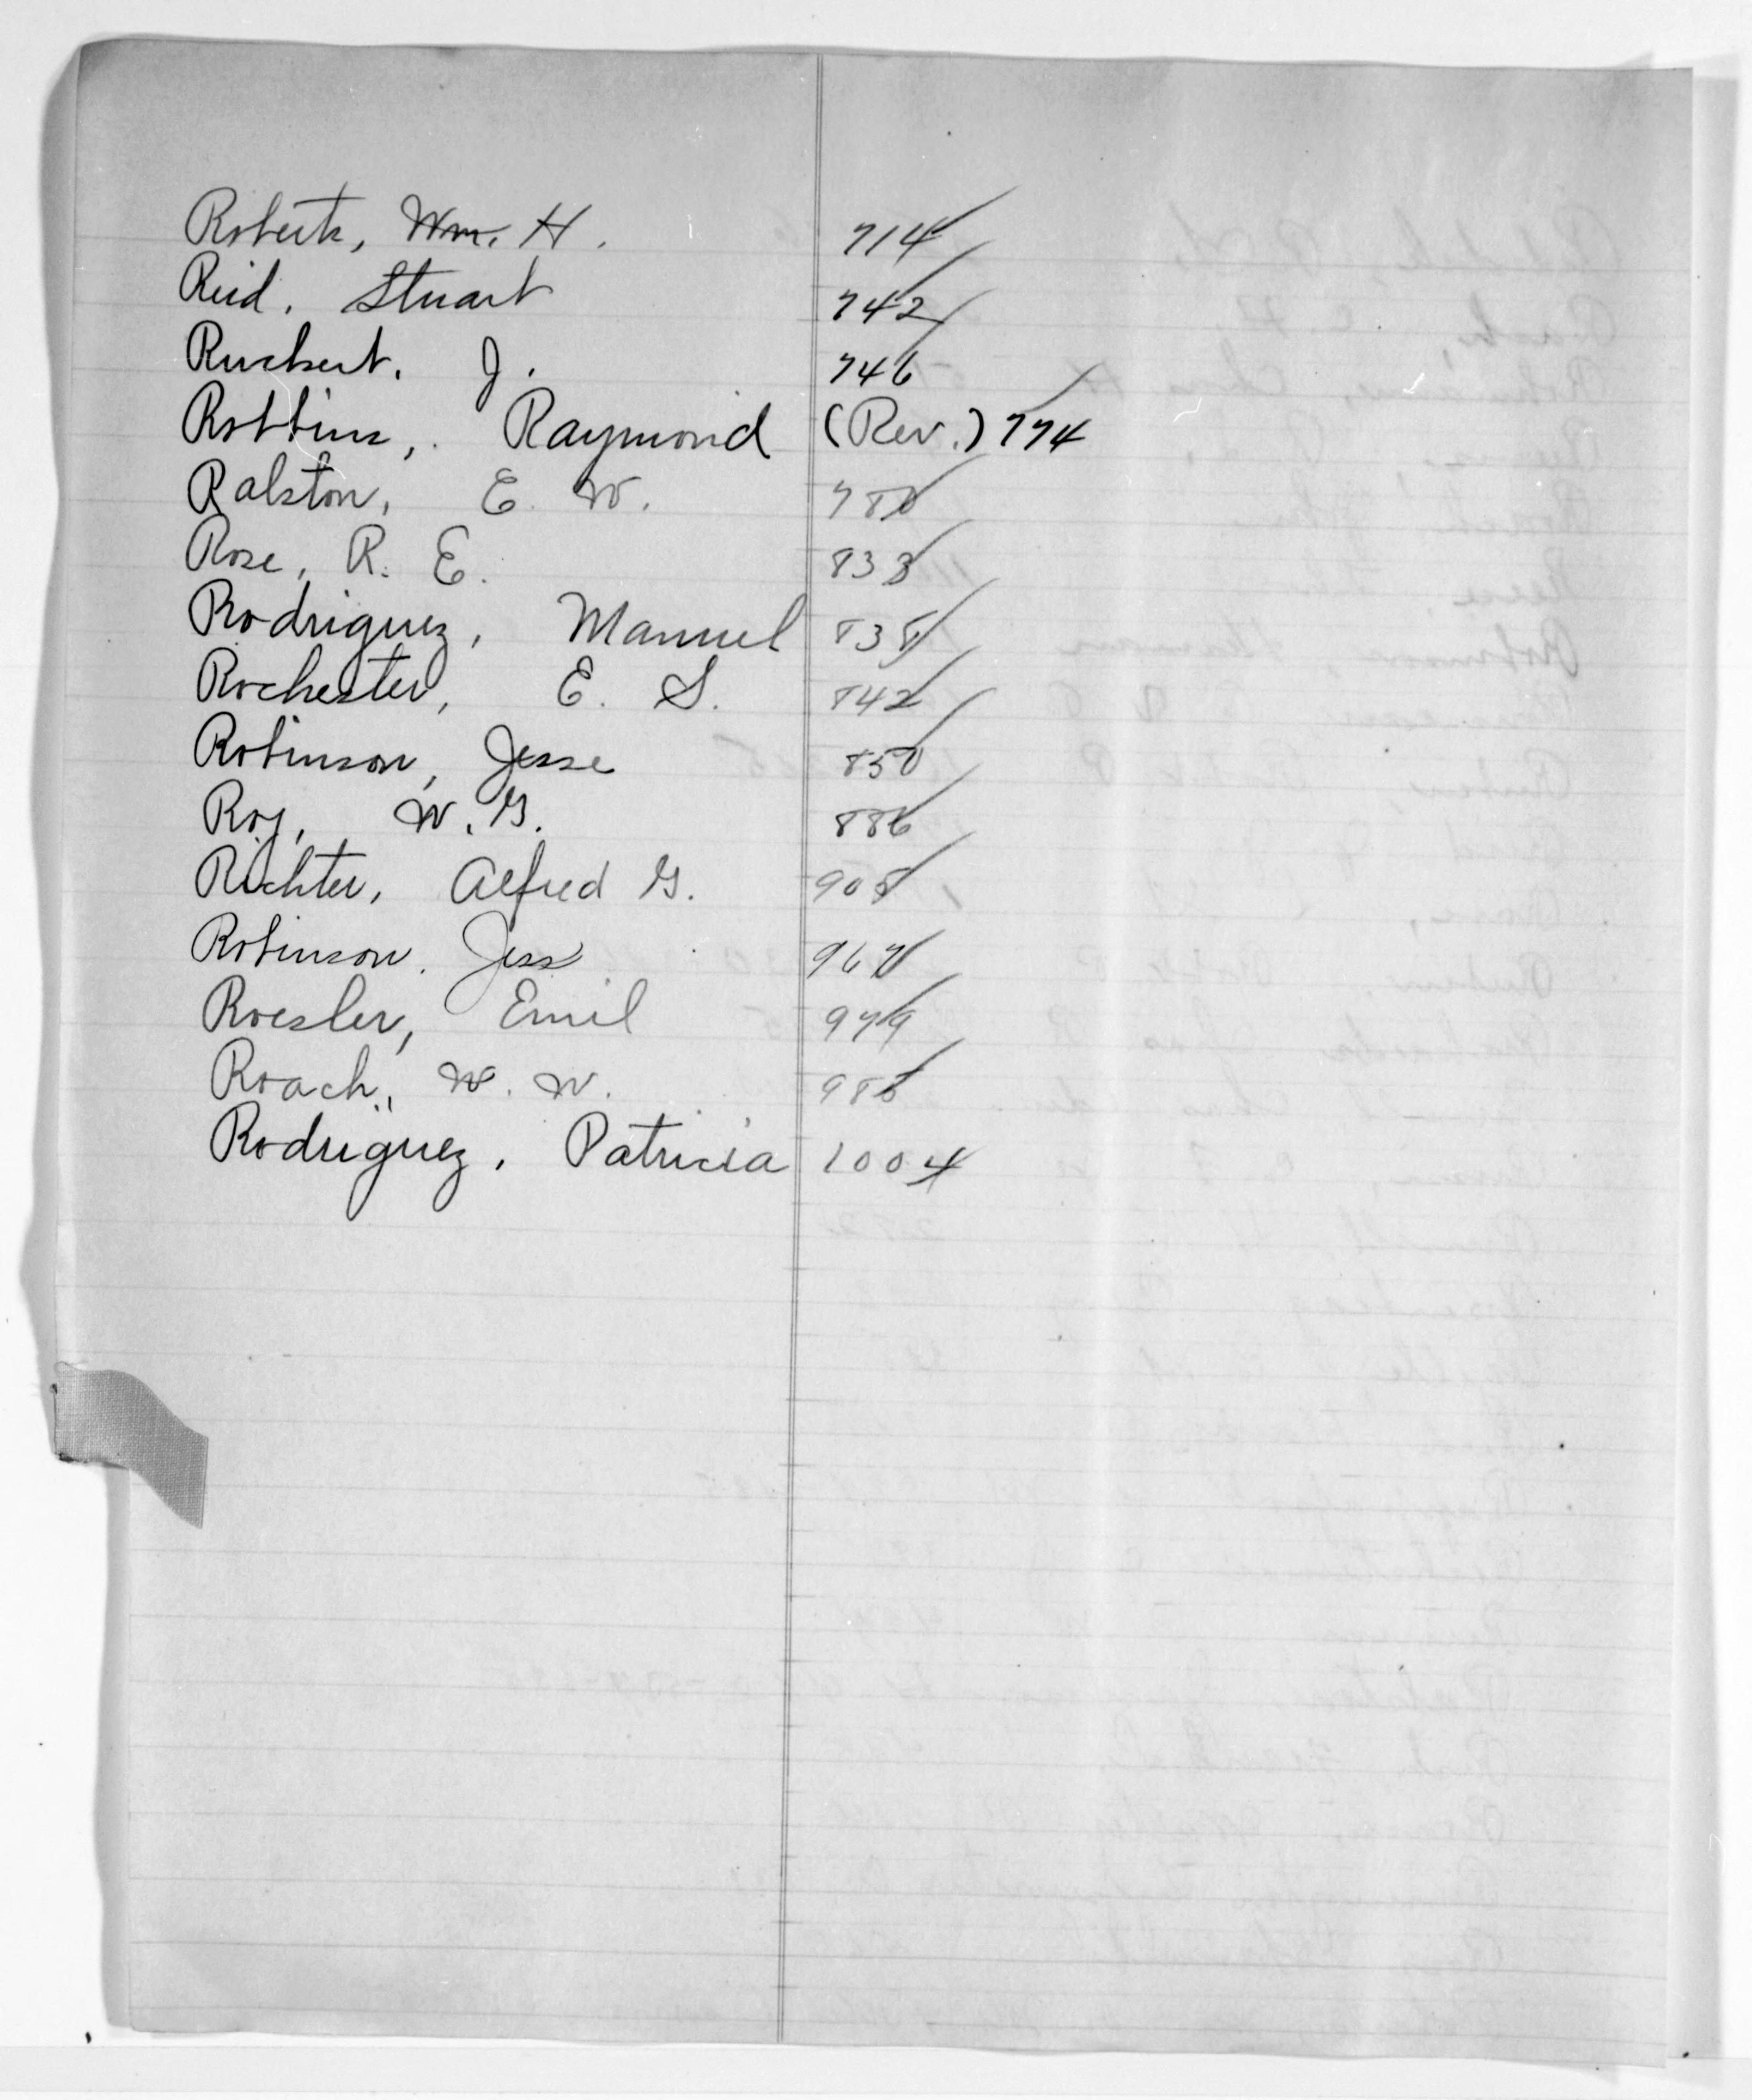 Roberts, Wm. H. 714
Reid, Stuart 742
Ruckert, J. 746
Robbins, Raymond (Rev.) 774
Ralston, E. W. 780
Rose, R. E. 833
Rodriguez, Manuel 838
Rochester, E. S. 842
Robinson, Jesse 850
Roy, W. G. 886
Richter, Alfred G. 908
Robinson, Jess 967
Roesler, Emil 979
Roach, W. W.
Rodriguez, Patricia 1004